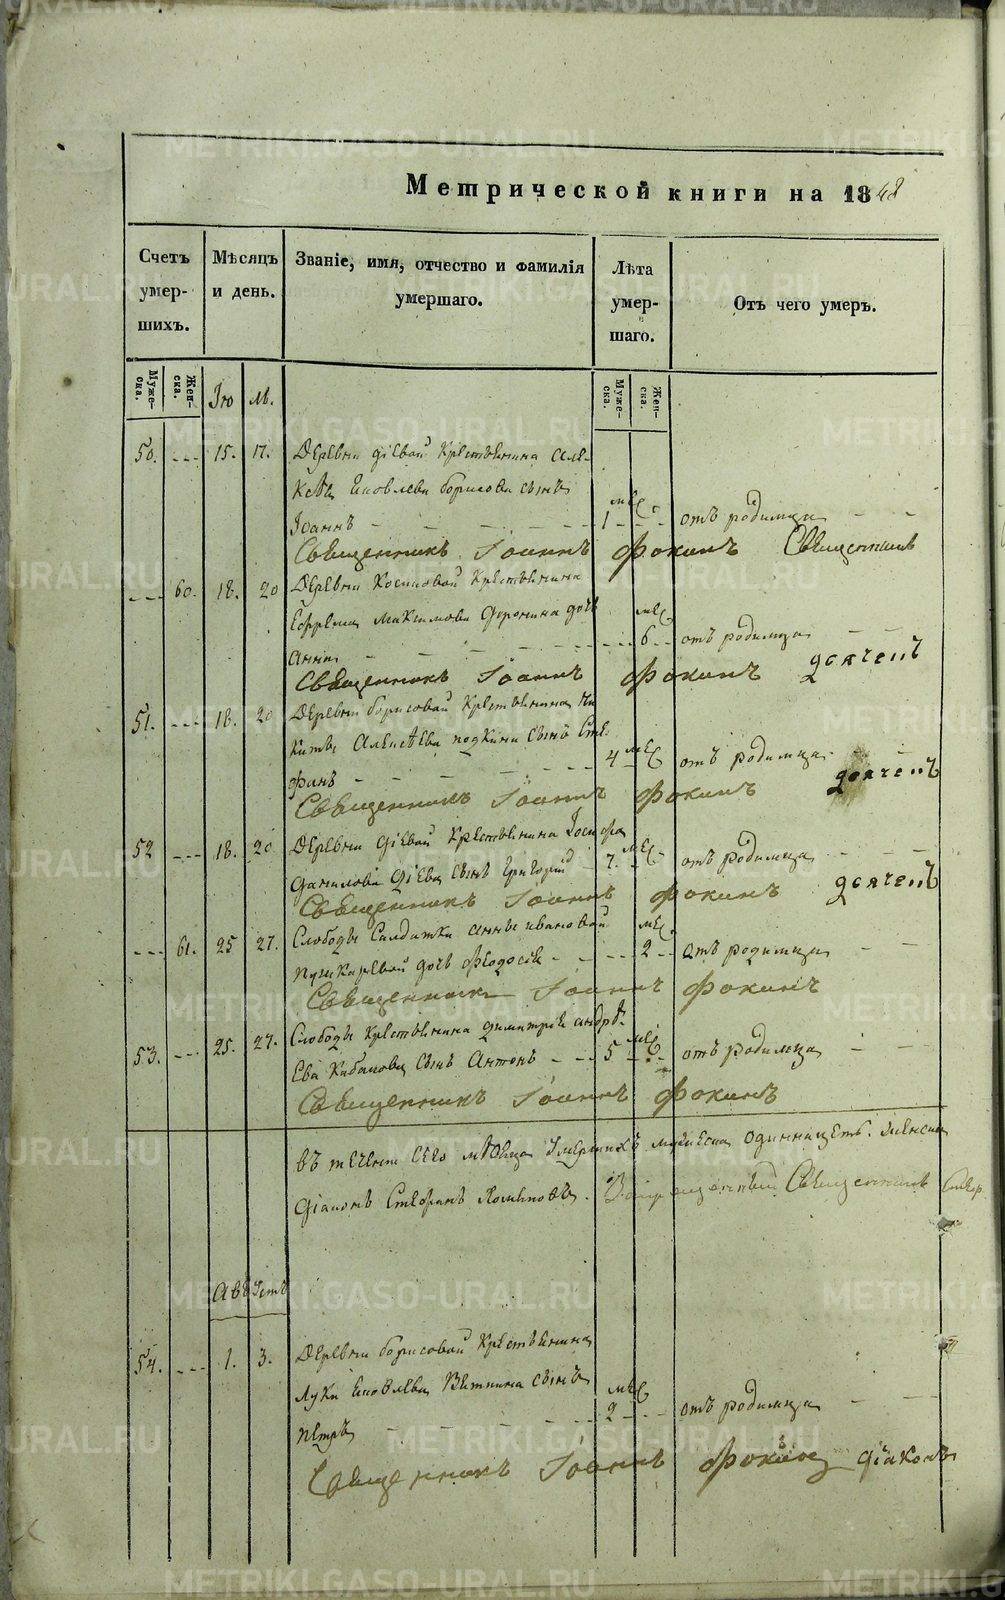 Метрической книги на 1848
Счетъ умер-шихъ.
Мѣсяцъ и день.
Званіе, имя, отчество и фамилія умершаго.
Лѣта умер-шаго.
Отъ чего умеръ.
Муже-ска.
Жен-ска.
Іюль.
Муже-ска.
Жен-ска.
50. 15. 17. Деревни Діевой крестьянина Але-
ксѣя Яковлева Борисова сынъ
Іоаннъ 1 мес. отъ родимца
Священникъ Іоаннъ Фокинъ Священникъ
60. 18. 20 Деревни Косиковой крестьянина
Ефрема Максимова Доронина дочь
Анна 6 мес отъ родимца
Священникъ Іоаннъ Фокинъ дьяченъ
51. 18. 20 Деревни Борисовой крестьянина Ни
киты Алексѣева сынъ Сте
фанъ 4 мес отъ родимца
Священникъ Іоаннъ Фокинъ дьяченъ
52 18. 20 Деревни Діевой крестьянина Іосифа
Данилова Діева сынъ Григорій 7. мес. отъ родимца
Священникъ Іоаннъ Фокинъ дьяченъ
61. 25 27. Слободы Салдатки Анны Ивановой
Пушкаревой дочь Феодосія 2 мес. отъ родимца
Священникъ Іоаннъ Фокинъ
53. 25. 27. Слободы крестьянина Димитрія Андрѣ-
ева Кабакова сынъ Антонъ 5 мес отъ родимца
Священникъ Іоаннъ Фокинъ
въ теченіи сего мѣсяца умершихъ мужеска одинницеть. женска
Діаконъ Стефанъ Священникъ
Августъ
54. 1. 3. Деревни Борисовой крестьянина
Луки Яковлева сынъ
Петръ 2 мес отъ родимца
Священникъ Іоаннъ Фокинъ Діаконъ
METRIKI.GASO-URAL.RU